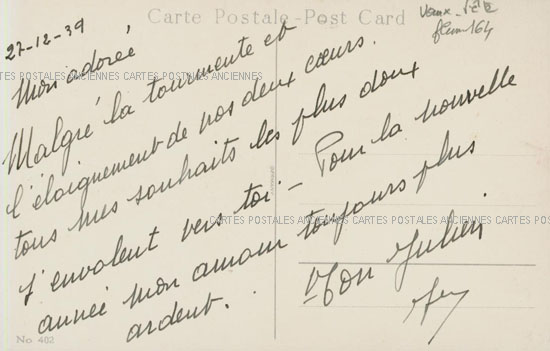 Carte Postale - Post Card
27-12-39
Mon adorée
Malgré la tourmente et
l'éloignement de nos deux cœurs.
tous mes souhaits les plus doux
s'envolent vers toi - Pour la nouvelle
année mon amour toujours plus
ardent.
Ton Julien
CARTES POSTALES ANCIENNES CARTES POSTALES ANCIENNES
CARTES POSTALES ANCIENNES CARTES POSTALES ANCIENNES
No 402